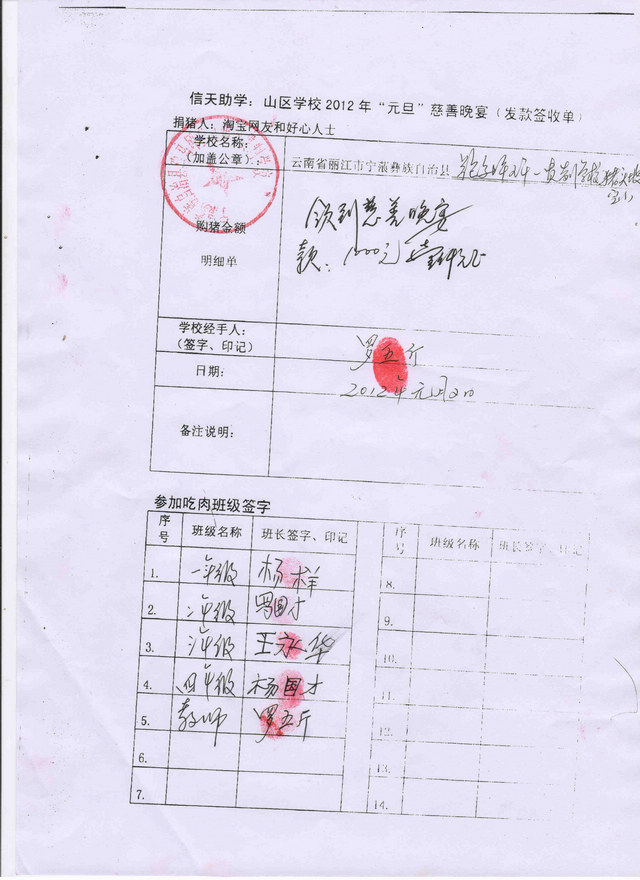 信天助学：山区学校2012年“元旦”慈善晚宴（发款签收单）
捐猪人：淘宝网友和好心人士
学校名称：
（加盖公章）
云南省丽江市宁蒗彝族自治县
购猪金额
明细单
领到慈善晚宴
款：1000元
学校经手人：
（签字、印记）
罗五斤
日期：
2012年元月2日
备注说明：
参加吃肉班级签字
序号 班级名称 班长签字、印记 序号 班级名称 班长签字、印记
1. 一年级 杨祥 8.
2. 二年级 罗国才 9.
3. 三年级 王永华 10.
4. 四年级 杨国才 11.
5. 教师 罗五斤 12.
6. 13.
7. 14.